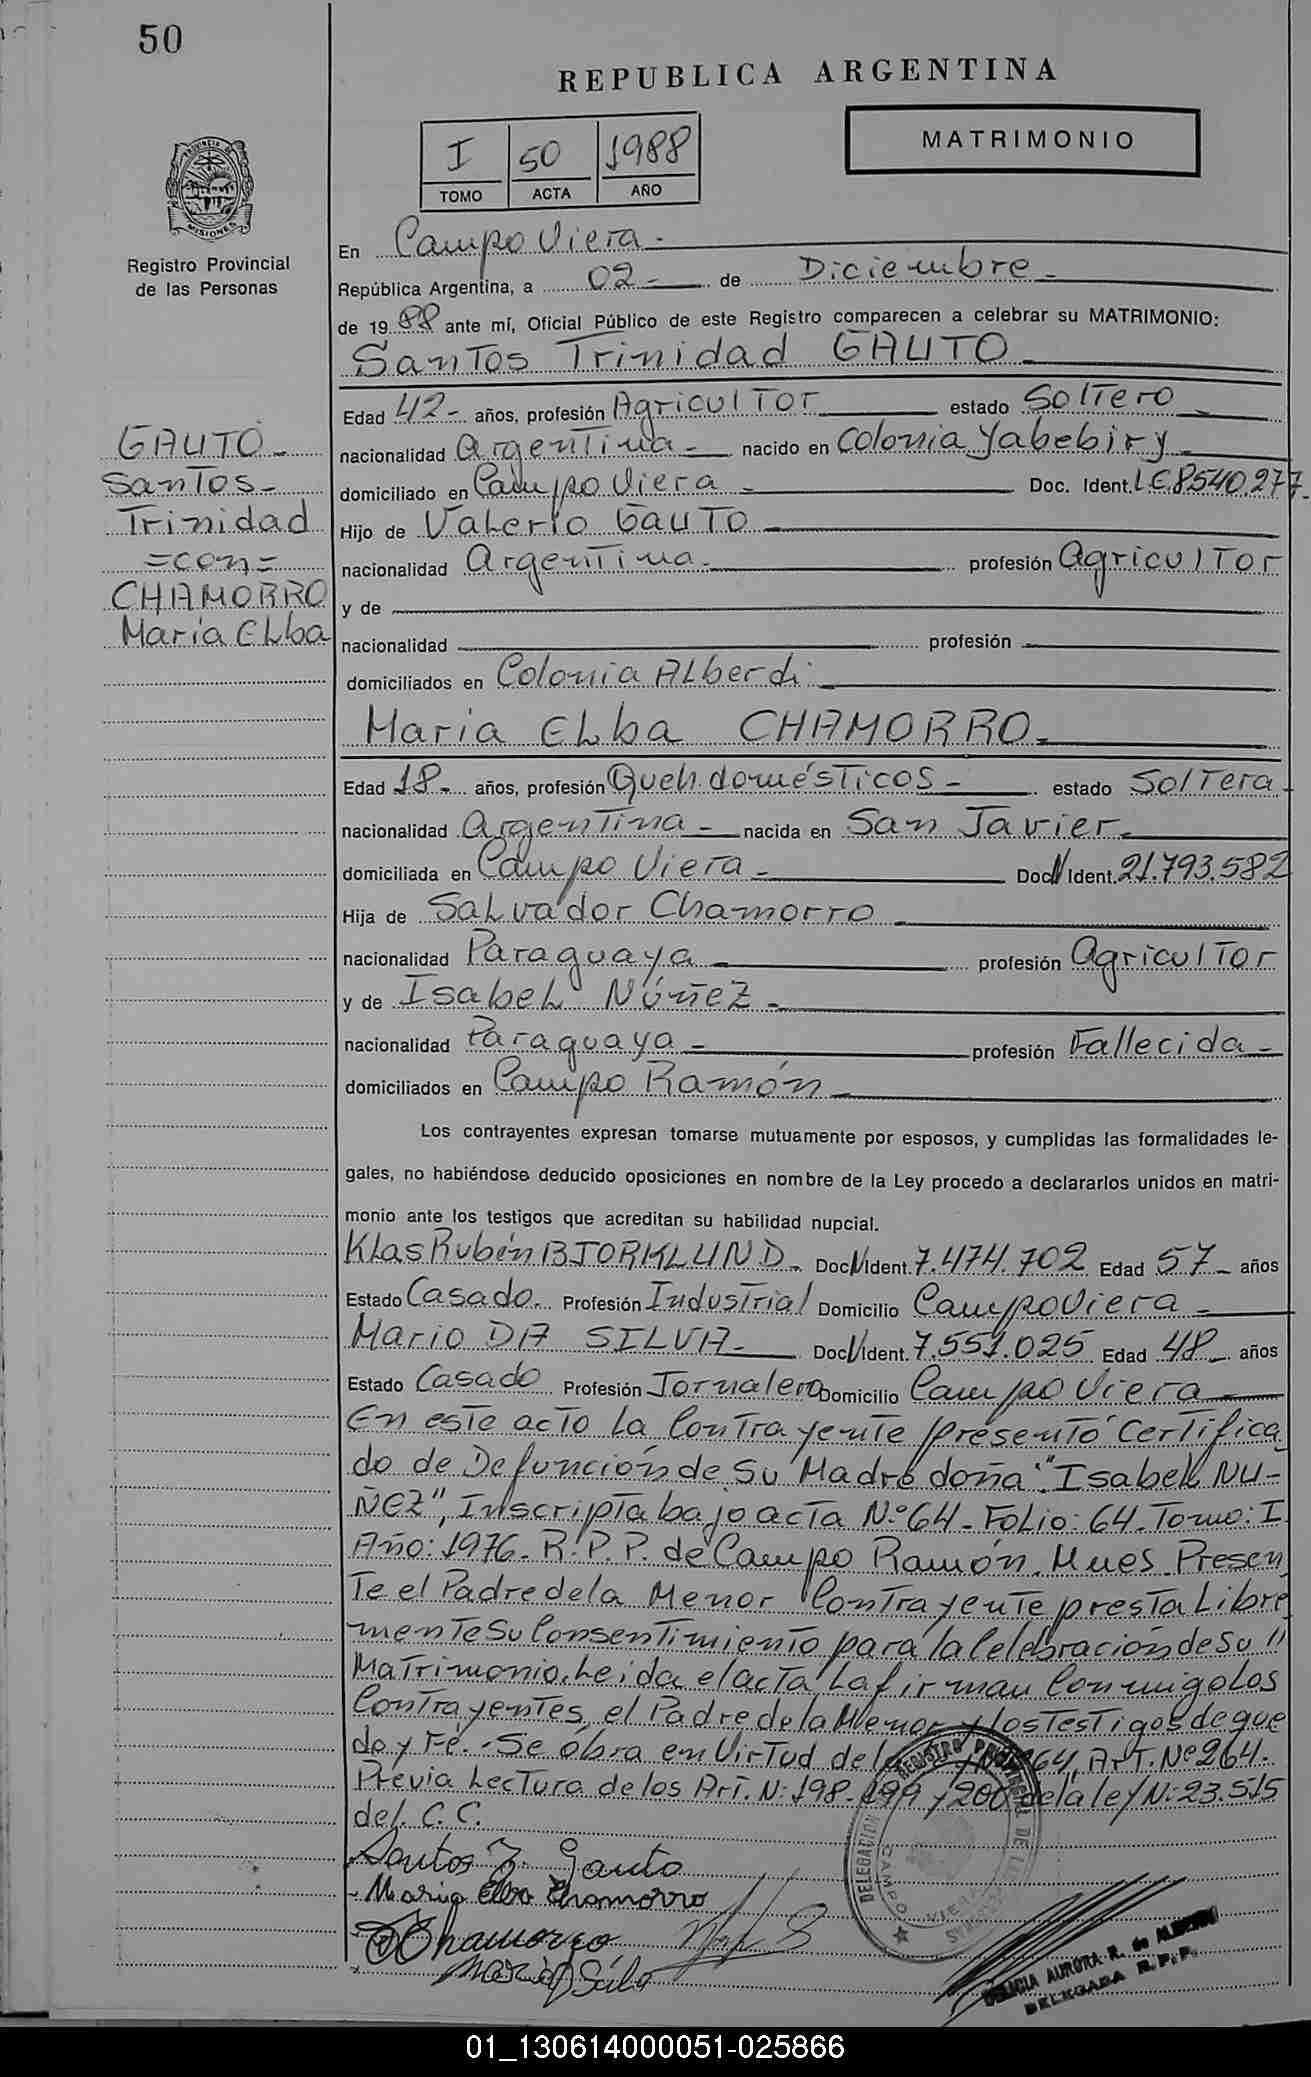 50
REPUBLICA ARGENTINA
MATRIMONIO
I 50 1988
TOMO ACTA AÑO
PROVINCIA DE
MISIONES
Registro Provincial
de las Personas
En Campo Viera.-
República Argentina, a 02- de Diciembre-
de 19 88 ante mí, Oficial Público de este Registro comparecen a celebrar su MATRIMONIO:
Santos Trinidad GAUTO-
Edad 42- años, profesión Agricultor estado Soltero-
nacionalidad Argentina- nacido en Colonia Yabebiry-
domiciliado en Campo Viera- Doc. Ident. LE 8540.277-
Hijo de Valerio Gauto-
nacionalidad Argentina. profesión Agricultor
y de
nacionalidad profesión
domiciliados en Colonia Alberdi-
GAUTO-
Santos-
Trinidad
=con=
CHAMORRO
María Elba
Maria Elba CHAMORRO-
Edad 18- años, profesión Queh. domésticos- estado Soltera-
nacionalidad Argentina- nacida en San Javier-
domiciliada en Campo Viera- Doc. N Ident. 21.793.582
Hija de Salvador Chamorro-
nacionalidad Paraguaya- profesión Agricultor
y de Isabel Núñez-
nacionalidad Paraguaya- profesión Fallecida-
domiciliados en Campo Ramón-
Los contrayentes expresan tomarse mutuamente por esposos, y cumplidas las formalidades le-
gales, no habiéndose deducido oposiciones en nombre de la Ley procedo a declararlos unidos en matri-
monio ante los testigos que acreditan su habilidad nupcial.
Klas Rubén BJORKLUND- Doc. N Ident. 7.474.702 Edad 57- años
Estado Casado. Profesión Industrial Domicilio Campo Viera-
Mario DA SILVA- Doc. N Ident. 7.551.025 Edad 48- años
Estado Casado Profesión Jornalero Domicilio Campo Viera-
En este acto la Contrayente presentó Certifica
do de Defunción de su Madre doña: "Isabel NU-
ÑEZ", Inscripta bajo acta Nº 64- Folio: 64. Tomo: I
Año: 1976- R.P.P. de Campo Ramón. Mnes. Presen
te el Padre de la Menor Contrayente presta Libre
mente su Consentimiento para la Celebración de su "
Matrimonio. Leida el acta La firman Conmigo los
Contrayentes, el Padre de la Menor y los testigos de que
doy Fé.- Se obra en Virtud de la 64, Art. Nº 264.
Previa Lectura de los Art. N: 198-199 y 200 de la ley N: 23.515
del. C. C.
Santos T. Gauto
Maria Elba Chamorro
Chamorro
Mario D Silva
DELEGACION REGISTRO PROVINCIAL DE LAS PERSONAS
CAMPO VIERA
AURORA R. de
DELEGADA R.P.P.
01_130614000051-025866